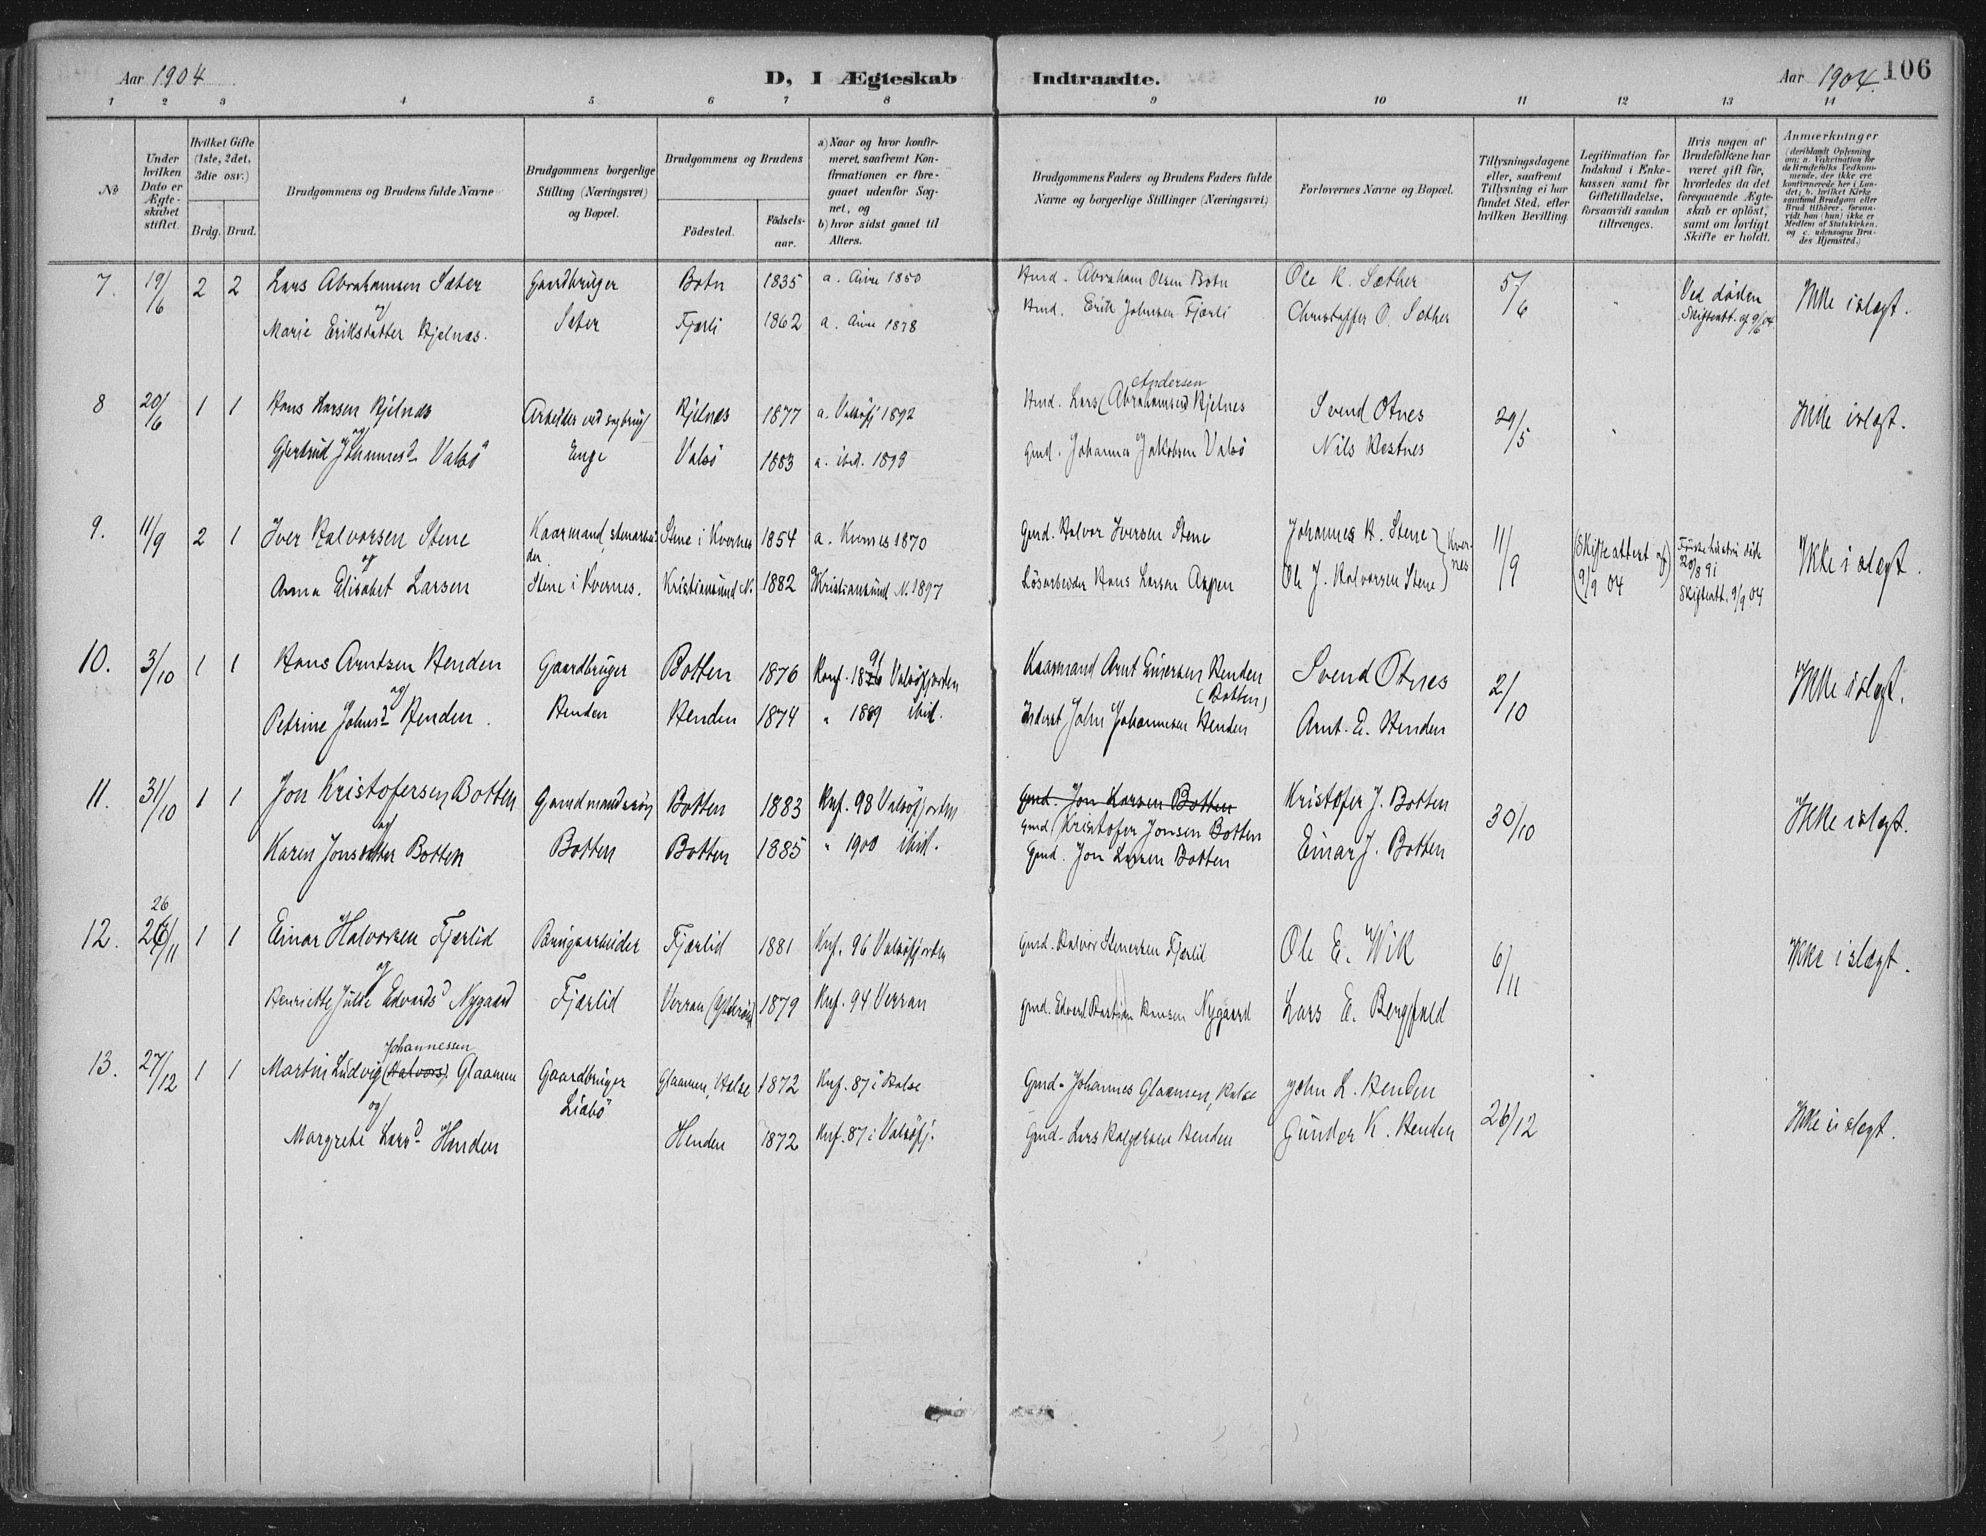 Aar 1904
D, I Ægteskab Indtraadte.
Aar 1904. 106
1 2 3 4 5 6 7 8 9 10 11 12 13 14
No
Under hvilken Dato er Ægteskabet stiftet.
Hvilket Gifte (1ste, 2det, 3die osv.)
Brdg. Brud.
Brudgommens og Brudens fulde Navne
Brudgommens borgerlige Stilling (Næringsvei) og Bopæl.
Brudgommens og Brudens
Födested.
Födsels-aar.
a) Naar og hvor konfirmeret, saafremt Konfirmationen er foregaaet udenfor Sognet, og
b) hvor sidst gaaet til Alters.
Brudgommens Faders og Brudens Faders fulde Navne og borgerlige Stillinger (Næringsvei)
Forlovernes Navne og Bopæl.
Tillysningsdagene eller, saafremt Tillysning ei har fundet Sted, efter hvilken Bevilling
Legitimation for Indskud i Enkekassen samt for Giftetilladelse, forsaavidt saadan tiltrænges.
Hvis nogen af Brudefolkene har været gift før, hvorledes da det foregaaende Ægteskab er oplöst; samt om lovligt Skifte er holdt.
Anmærkninger
(deriblandt Oplysning om: a. Vakcination for de Brudefolks Vedkommende, der ikke ere konfirmerede her i Landet; b. hvilket Kirkesamfund Brudgom eller Brud tilhører, forsaavidt han (hun) ikke er Medlem af Statskirken, og c. udensogns Brudes Hjemsted.)
7. 19/6 2 2 Lars Abrahamsen Sæter Gaardbruger Botn 1835 a. Aure 1850 Abraham Olsen Botn Ole K. Sæther 5/6 Ved døden Ikke i slægt.
og
Marie Eriksdatter Kjelnæs. Sæter Fjærli 1862 a. Aure 1878 Erik Johnsen Fjærli Christoffer O. Sæther Skifteatt. af 9/6 04
Andersen
8 20/6 1 1 Hans Larsen Kjelnæs Arbeider ved sagbrug Kjelnæs 1877 a. Valsøfj 1892 Lars (Abrahamsen) Kjelnes Svend Otnes 29/5 Ikke i slegt.
og
Gjertrud Johannesd. Valsö Enge Valsö 1883 a. ibid. 1898 Gmd. Johannes Jakobsen Valsö Nils Restnes
9. 11/9 2 1 Iver Halvorsen Stene Kaarmand, stenarbeider Stene i Kvernes 1854 a. Kvernes 1870 Gmd. Halvor Iversen Stene Johannes H. Stene Kvernes 11/9 (Skifteattest af 9/9 04)
og
Anna Elisabet Larsen Stene i Kvernes. Kristiansund N. 1882 Kristiansund N. 1897 Løsarbeider Hans Larsen Aspen Ole J. Halvorsen Stene Skifteatt. 9/9 04 Ikke i slægt.
10. 3/10 1 1 Hans Arntsen Henden Gaardbruger Botten 1876 Konf. 1891 Valsöfjorden Kaarmand Arnt Einersen Henden (Botten) Svend Otnes 2/10 Ikke i slegt.
og
Petrine Johnsd. Henden. Henden Henden 1874 " 1889 ibid. Inderst John Johannesen Henden Arnt. E. Henden
11. 31/10 1 1 Jon Kristofersen Botten Gaardmandssøn Botten 1883 Knf. 98 Valsöfjorden Gmd. Jon Larsen Botten Kristofer J. Botten 30/10 Ikke i slegt.
og
Gmd. Kristofer Jonsen Botten
Karen Jonsdatter Botten Botten Botten 1885 " 1900 ibid. Gmd. Jon Larsen Botten Einar J. Botten
26
12. 26/11 1 1 Einar Halvorsen Fjærlid Brugsarbeider Fjærlid 1881 Knf. 96 Valsöfjorden Gmd. Halvor Stenersen Fjærlid Ole E. Wik 6/11 Ikke i slægt.
og
Henriette Julie Edvardsd. Nygaard Fjærlid Verran 1879 Knf. 94 Verran Gmd. Edvard Bastian Hansen Nygaard Lars E. Bergfald
Johannessen
13. 27/12 1 1 Martin Ludvig (Halvors). Glaamen Gaardbruger Glaamen, Halse 1872 Knf. 87 i Halse Gmd. Johannes Glaamen, Halse John L. Henden 26/12 Ikke i slegt.
og
Liabö
Margrete Larsd. Henden Henden 1872 Knf. 87 i Valsöfj. Gmd. Lars Holgersen Henden Gunder K. Henden